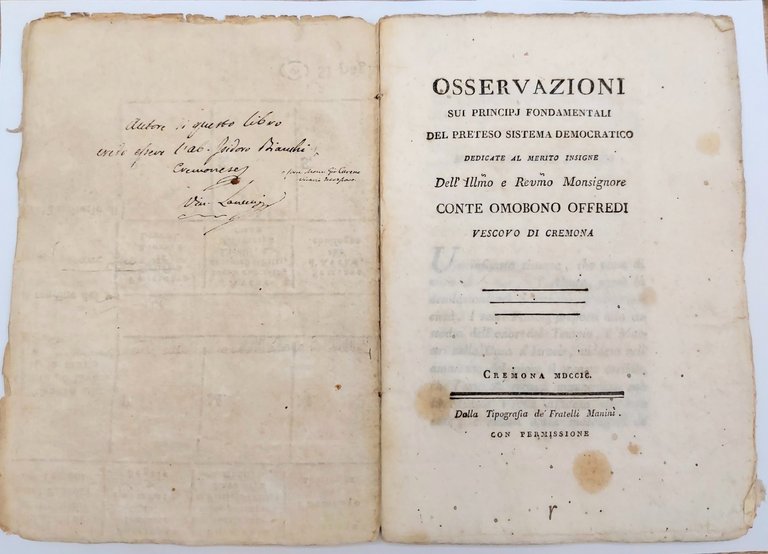 Autore di questo libro
credo essere l'ab. Isidoro Bianchi
Cremonese
Vin. Lancetti
OSSERVAZIONI
SUI PRINCIPJ FONDAMENTALI
DEL PRETESO SISTEMA DEMOCRATICO
DEDICATE AL MERITO INSIGNE
Dell' Illm̃o e Revm̃o Monsignore
CONTE OMOBONO OFFREDI
VESCOVO DI CREMONA
CREMONA MDCCIC.
Dalla Tipografia de' Fratelli Manini.
CON PERMISSIONE